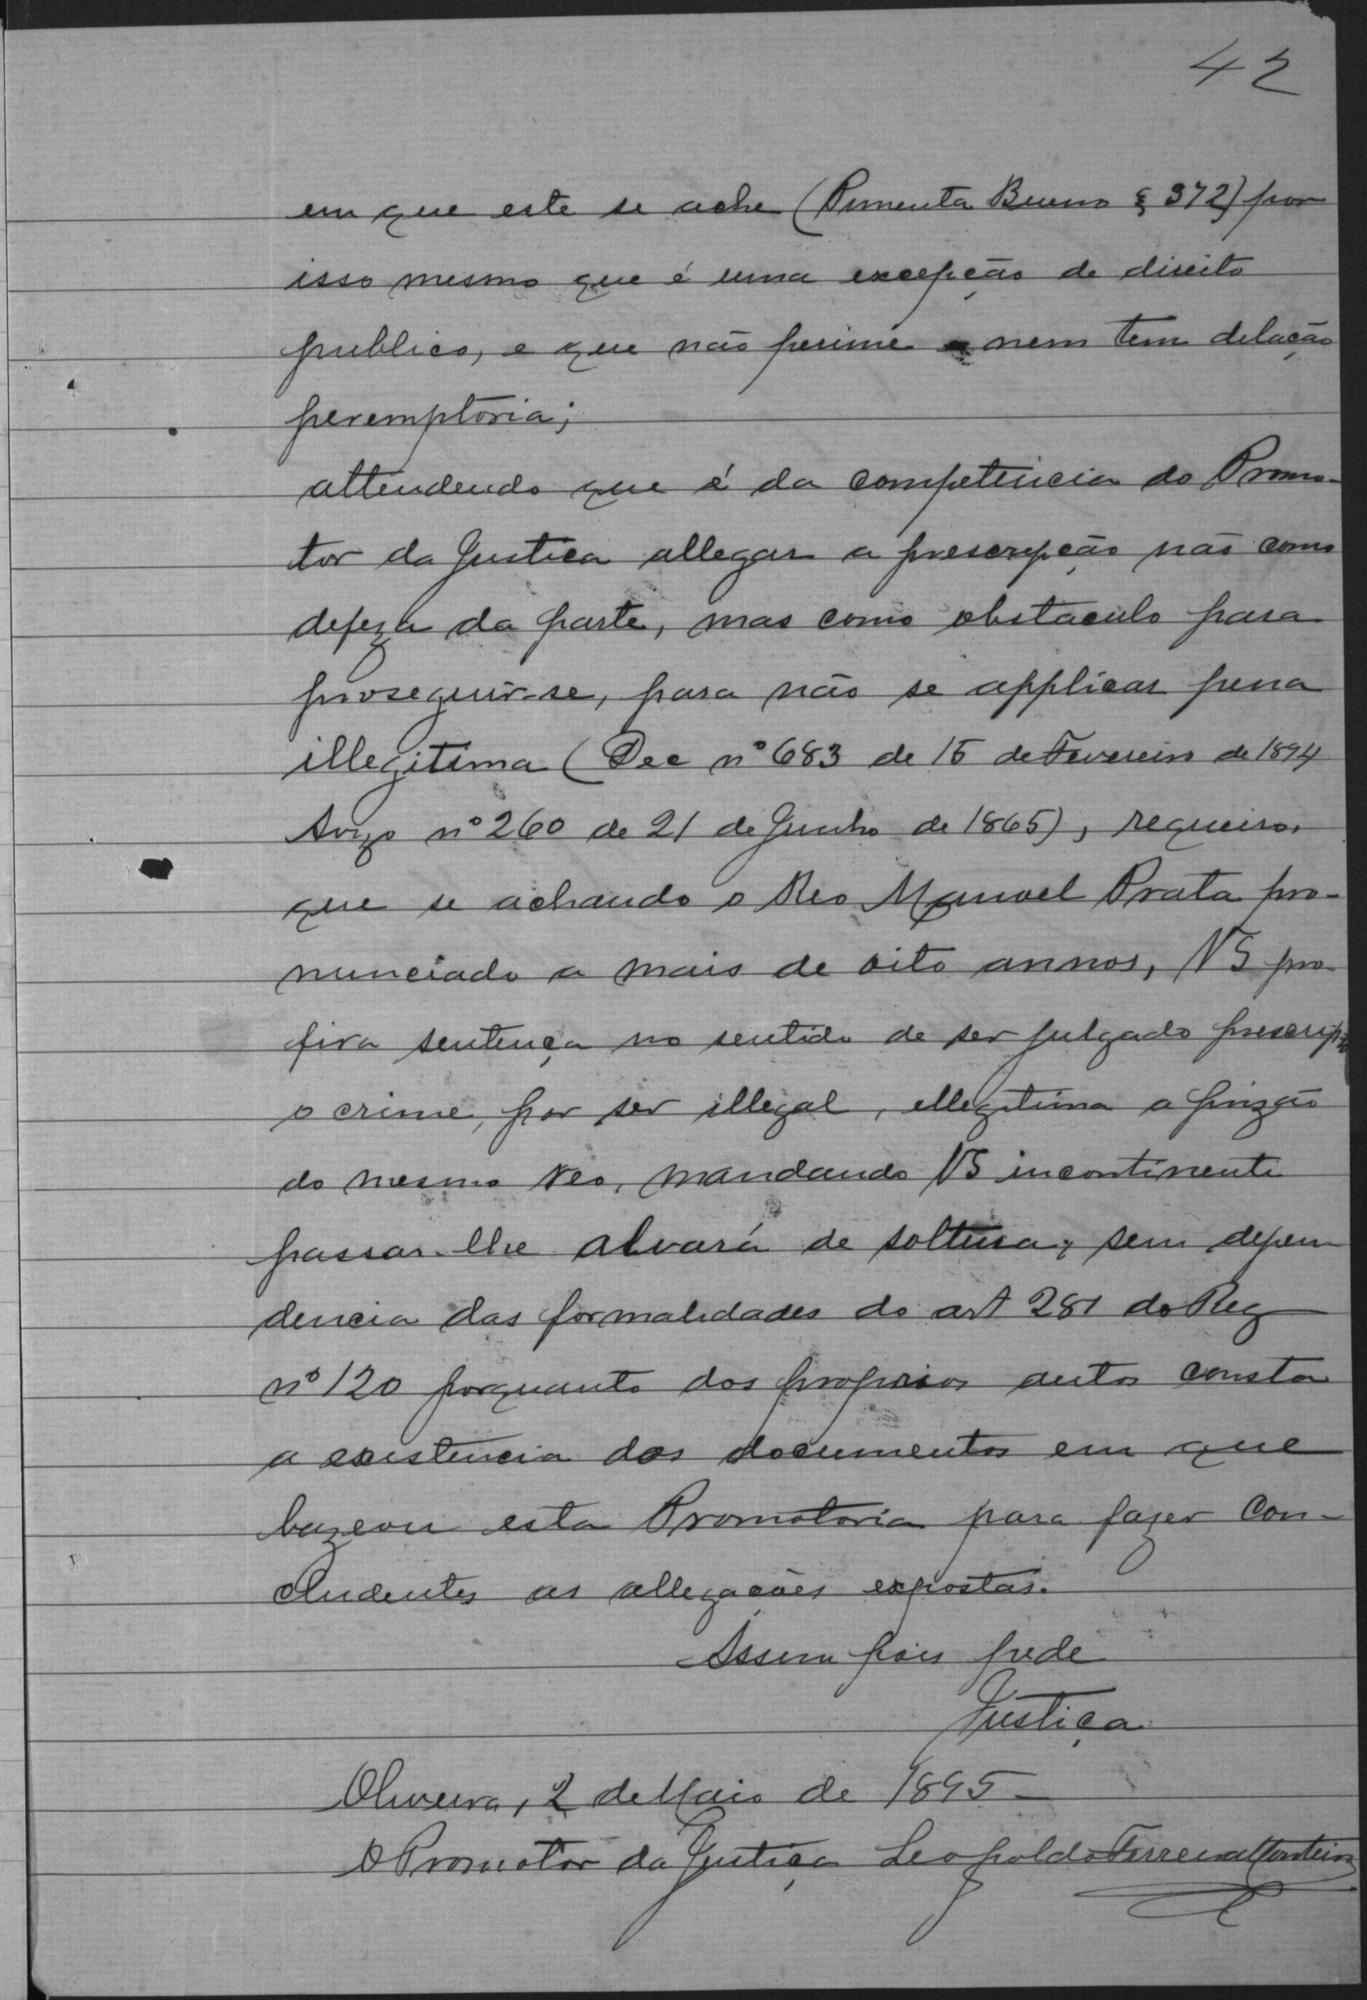 42
em que este se ache (Pimenta Bueno § 372) por
isso mesmo que é uma excepção de direito
publico, e que não perime nem tem delação
peremptoria;
attendendo que é da competencia do Promo-
tor da Justiça allegar a prescripção não como
defeza da parte, mas como obstaculo para
proseguir-se, para não se applicar pena
illegitima (Dec nº 683 de 15 de Fevereiro de 1894
Avizo nº 260 de 21 de Junho de 1865), requeiro,
que se achando o Reo Manoel Prata pro-
nunciado a mais de oito annos, VS pro-
fira sentença no sentido de ser julgado prescripto
o crime, por ser illegal, illegitima a prizão
do mesmo reo, mandando VS incontinente
passar-lhe alvará de soltura, sem depen
dencia das formalidades do art 281 do Reg
nº 120 porquanto dos proprios autos consta
a existencia dos documentos em que
bazeou esta Promotoria para fazer con-
cludentes as allegações expostas.
Assim pois pede
Justiça
Oliveira, 2 de Maio de 1895
O Promotor da Justiça Leopoldo Ferreira Monteiro